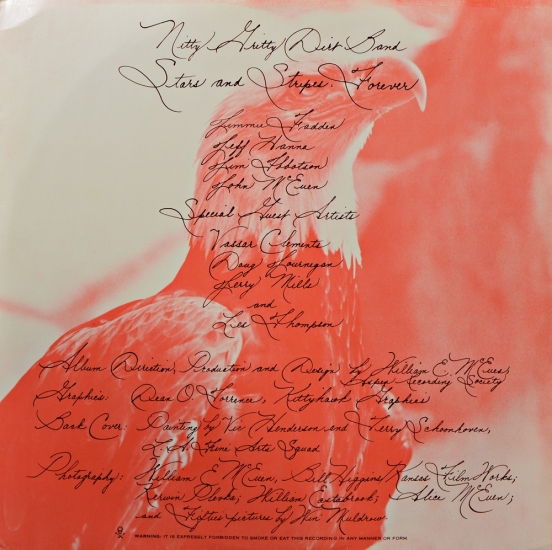 Nitty Gritty Dirt Band
Stars and Stripes Forever
Jimmie Fadden
Jeff Hanna
Jim Ibbotson
John McEuen
Special Guest Artists
Vassar Clements
Doug Journegan
Jerry Mills
and
Les Thompson
Album Direction, Production and Design by William E. McEuen,
Aspen Recording Society
Graphics: Dean O. Torrence, Kittyhawk Graphics
Back Cover: Painting by Vic Henderson and Terry Schoonhoven,
L.A. Fine Arts Squad
Photography: William E. McEuen, Bill Higgins Kansas Film Works;
William Eastabrook; Alice McEuen;
and Fifties pictures by Win Muldrow
WARNING: IT IS EXPRESSLY FORBIDDEN TO SMOKE OR EAT THIS RECORDING IN ANY MANNER OR FORM